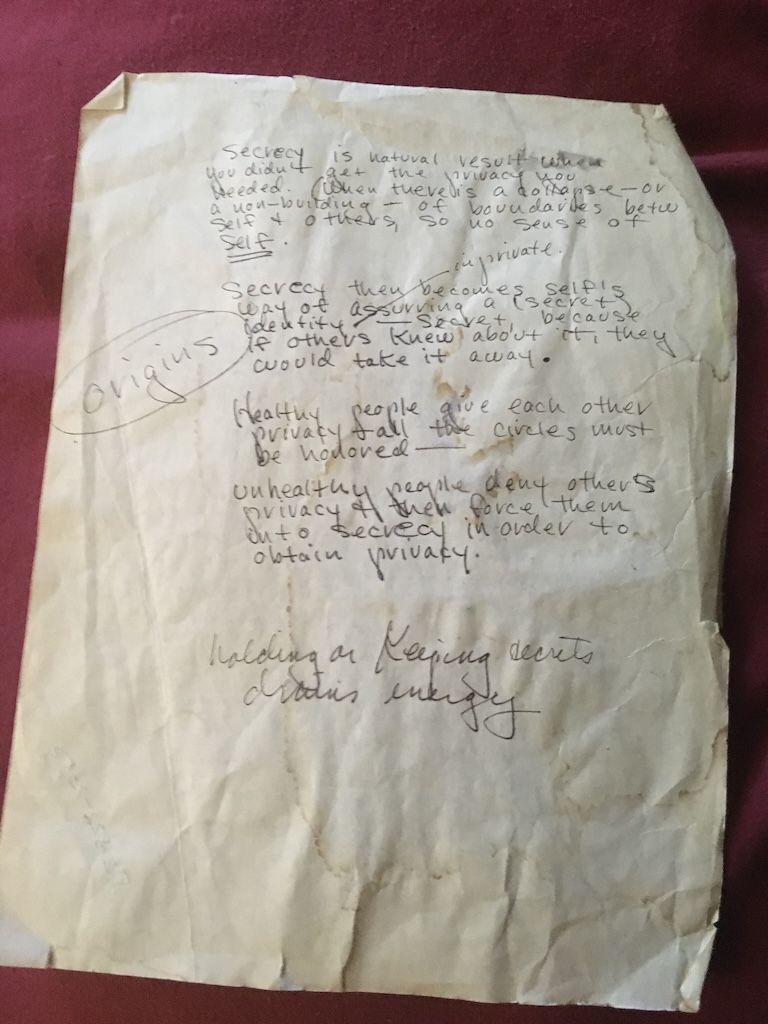 Secrecy is natural result when
you didn't get the privacy you
needed. (When there is a collapse — or
a non-building — of boundaries betw
self + others, so no sense of
self.
in private.
Secrecy then becomes self's
way of assurring a (secret)
identity — Secret, because
if others knew about it, they
would take it away.
origins
Healthy people give each other
privacy + all the circles must
be honored —
unhealthy people deny others
privacy & then force them
into secrecy in order to
obtain privacy.
holding or Keeping secrets
drains energy